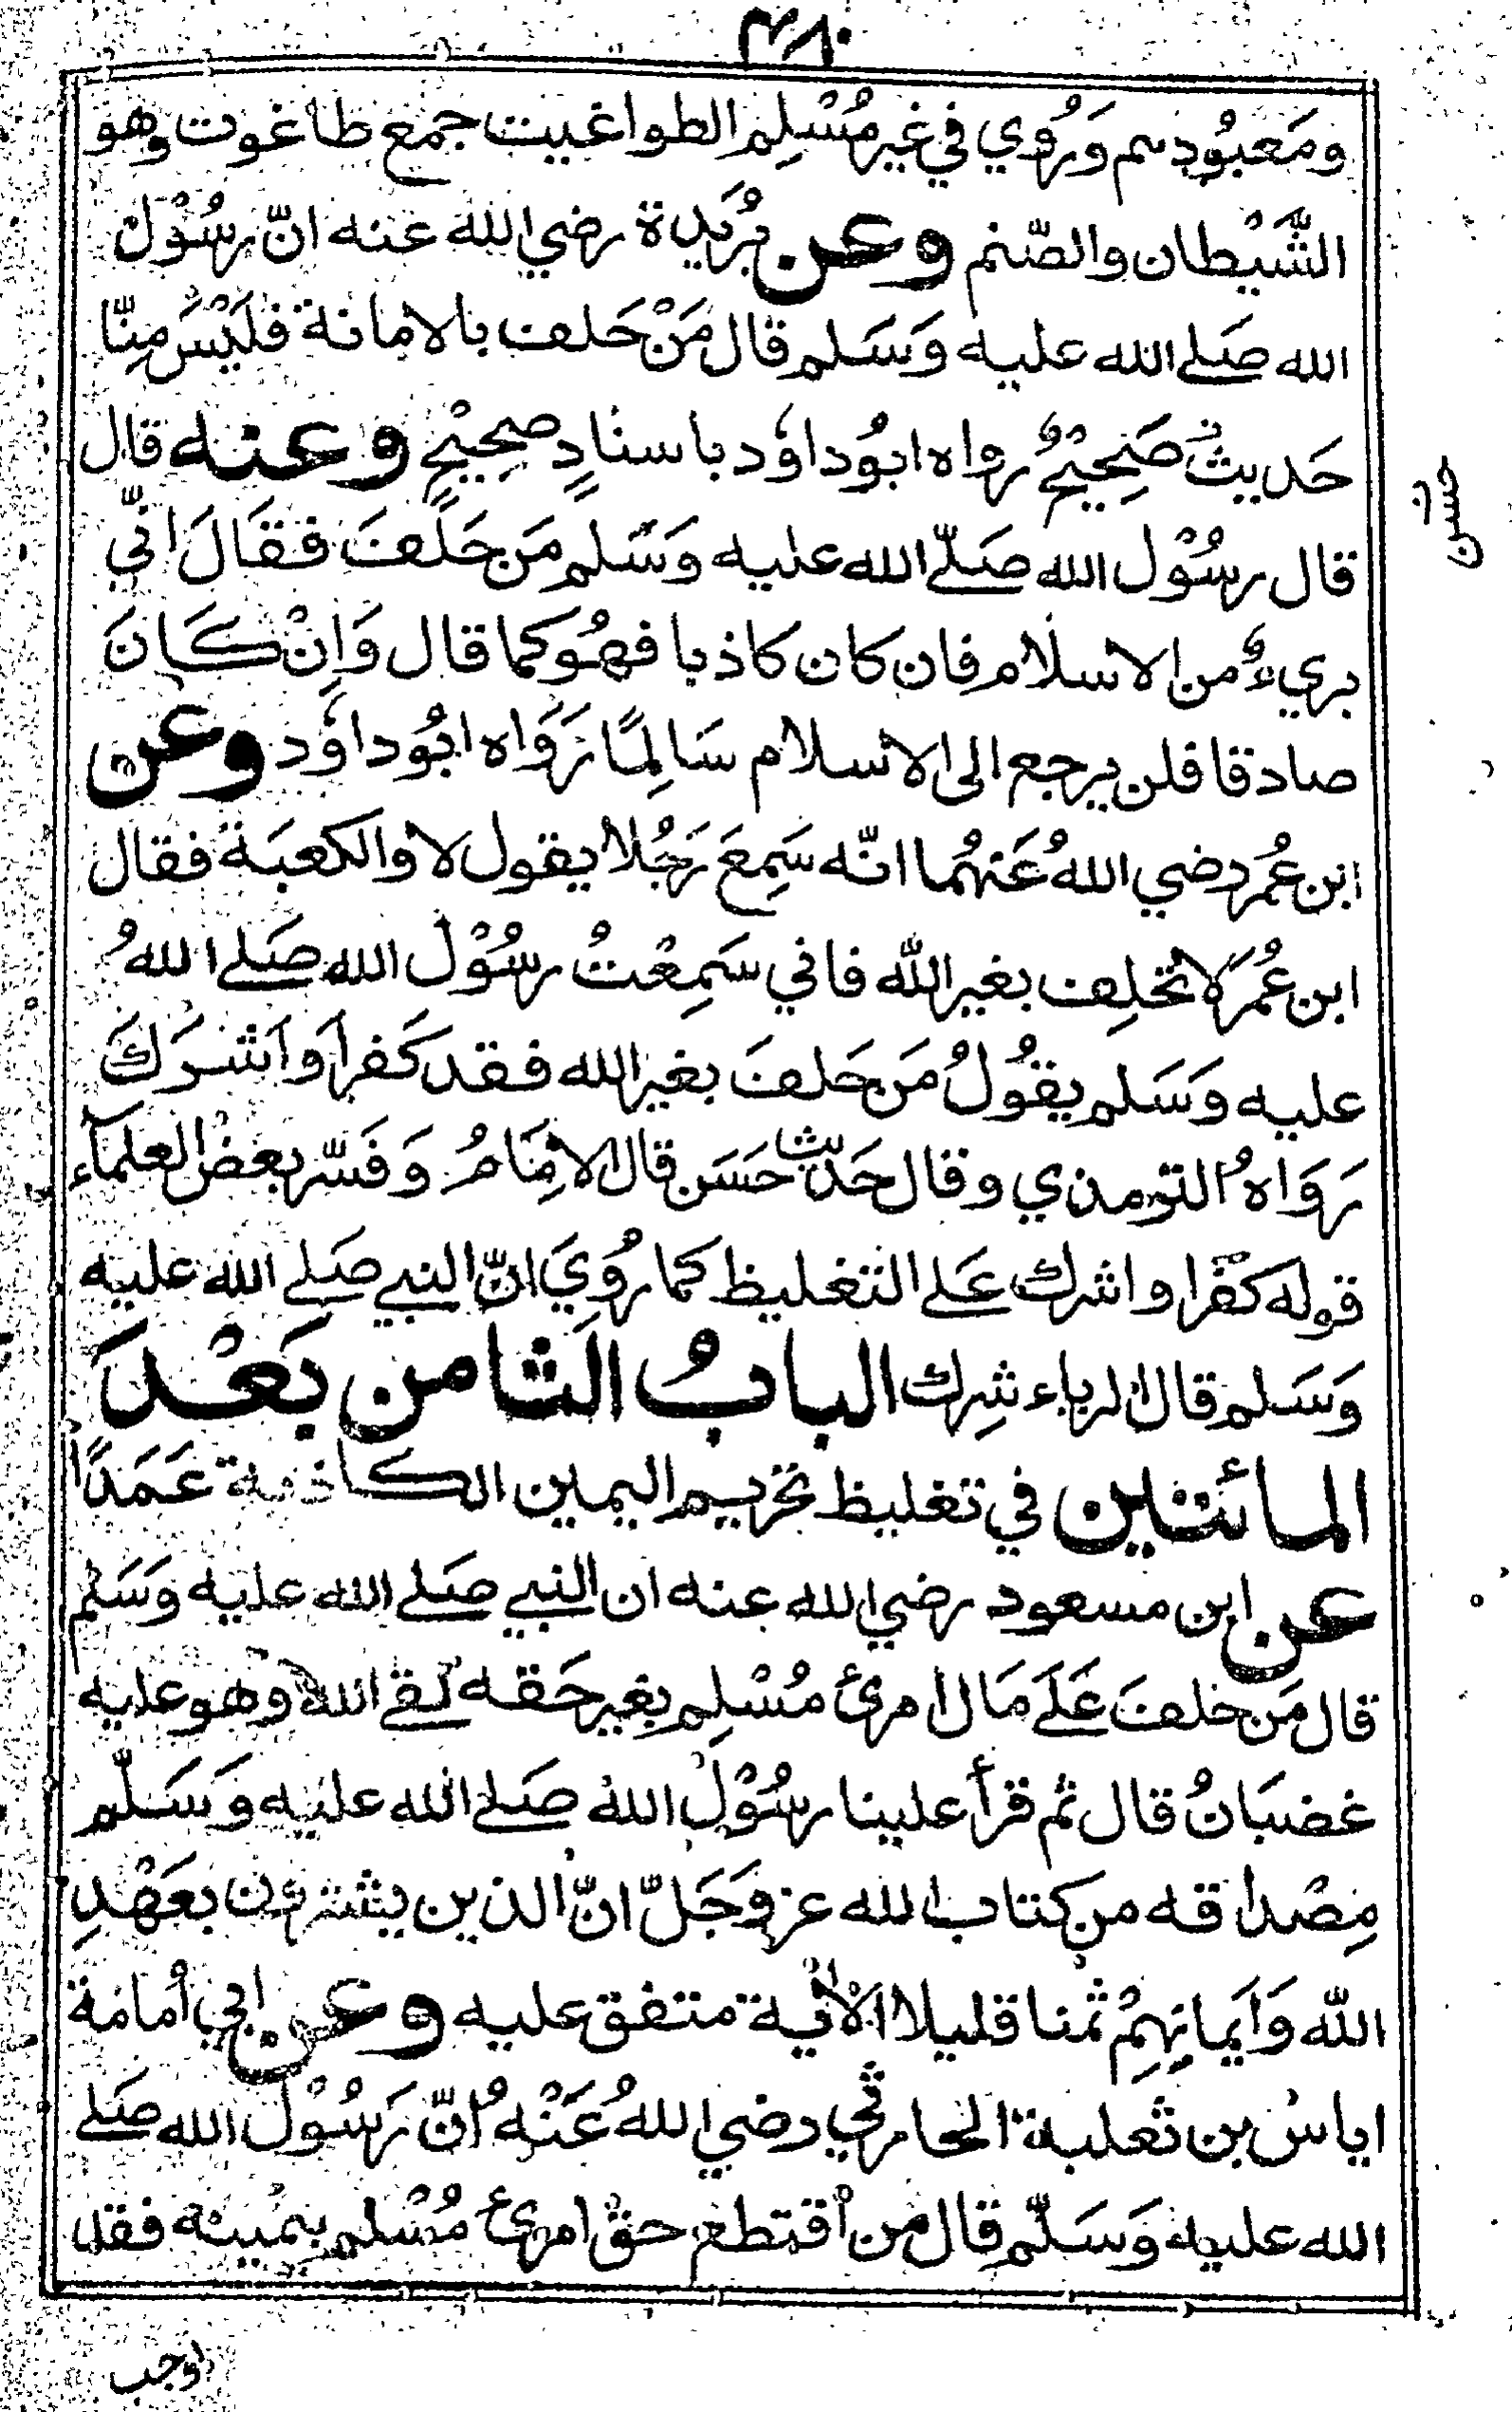 ٣٨٠
ومَعبُودهم وَرُوي في غير مُسْلِم الطواغيت جمع طاغوت وهو
الشَّيْطان والصّنم وعن بُرَيدة رضي الله عنه انّ رسُوْل
الله صَلے الله عليه وَسَلم قال مَنْ حَلف بالامانة فلَيْسَ مِنّا
حَديثٌ صَحِيْحٌ رواه ابُوداوٗد باسنادٍ صحِيْحٍ وعنه قال
حسن
قال رسُوْل الله صَلّے الله عليه وَسَلم مَن حَلَفَ فقَالَ انّي
بريءٌ من الاسلام فان كان كاذبا فهُو كما قال وَاِنْ كَانَ
صادقا فلن يرجع الى الاسلام سَالِمًا رَوَاه ابُوداوٗد وعن
ابن عُمر رضي اللهُ عَنهُما انّه سَمِعَ رَجُلا يقول لا والكعبَة فقال
ابن عُمَر لا تحْلِف بغير الله فاني سَمِعْتُ رسُوْل الله صَلے اللهُ
عليه وَسَلم يقُولُ مَن حَلفَ بغير الله فقد كَفَر اَو اَشرَكَ
رَوَاهُ الترمذي وقال حَديث حَسَن قال الامَامُ وَفَسّر بعْض العلمآء
قوله كفَر او اشرك عَلے التغليظ كما رُوِيَ انّ النبي صَلے الله عليه
وَسَلم قال الرياء شِرك البابُ الثامن بَعْدَ
المائتين في تغليظ تحريم اليمين الكاذبة عَمَدًا
عن ابن مسعود رضي الله عنه ان النبي صَلے الله عليه وَسَلم
قال مَن حَلفَ عَلَے مَال امرئ مُسْلِم بِغير حَقه لقے الله وهو عليه
غضبَانُ قال ثم قرأ علينا رسُوْل الله صَلے الله عليه وَسَلّم
مِصْداقه من كتاب الله عز وَجَلّ انّ الذين يشترون بعَهْدِ
الله وَاَيمانِهِمْ ثمنا قليلا الْاٰية متفق عليه وعن ابي اُمامة
اياس بن ثعلبة الحارثي رضي اللهُ عَنْهُ اَنّ رَسُوْل الله صَلے
الله عليه وَسَلّم قال مَن اقتطع حق امرئ مُسْلم بيمينه فقد
اوجب